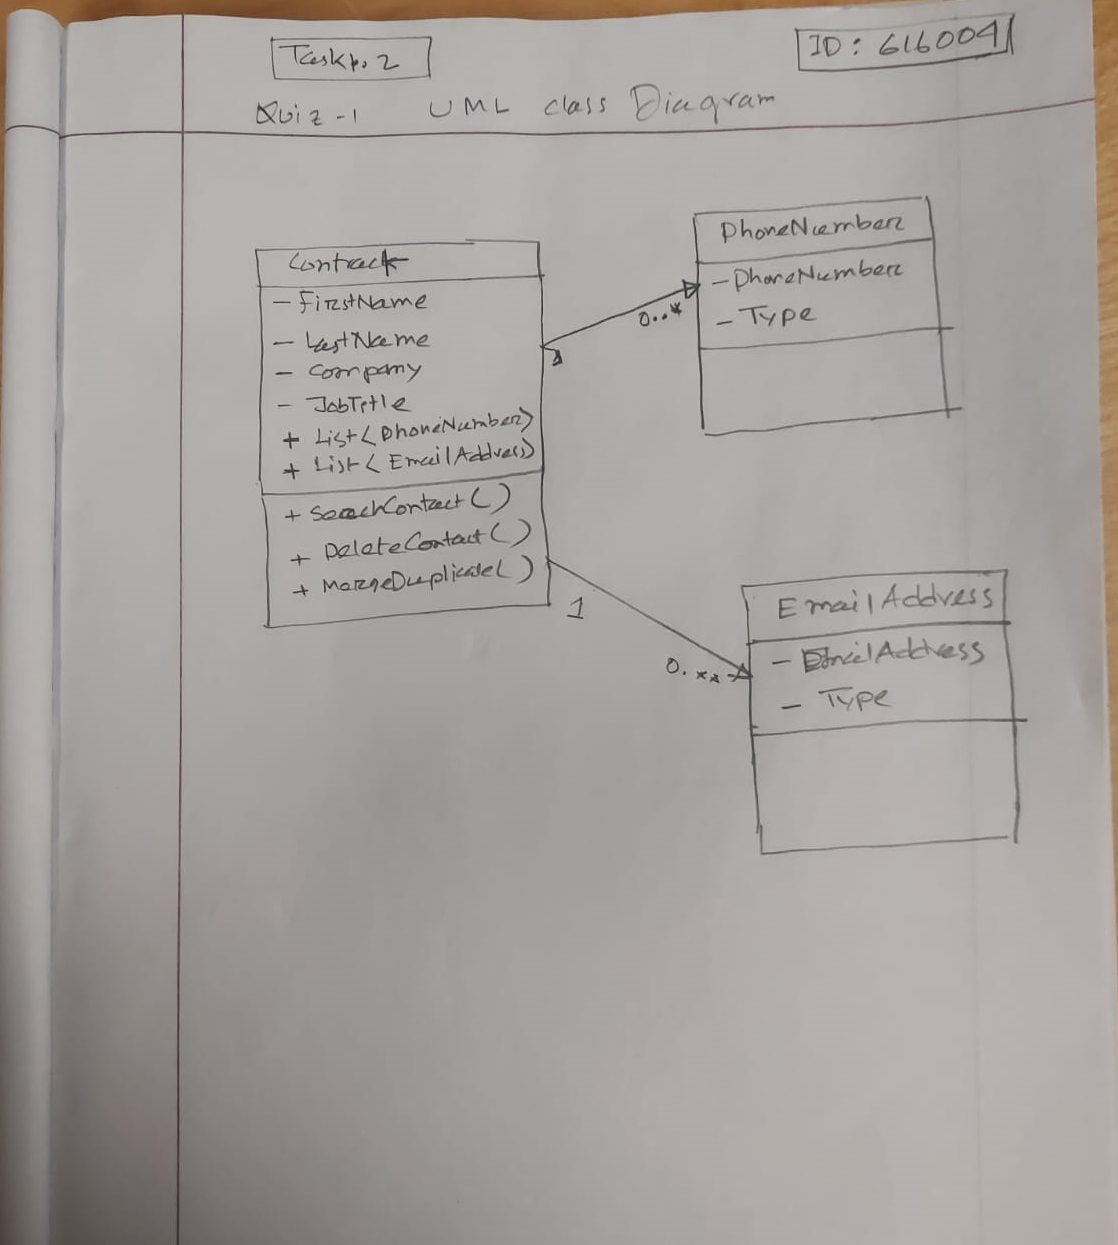 Task p. 2
ID: 616004
Quiz-1 UML class Diagram
Contract
- FirstName
- LastName
- Company
- JobTitle
+ List<PhoneNumber>
+ List<EmailAddress>
+ SearchContact()
+ DeleteContact()
+ MergeDuplicate()
1
0..*
PhoneNumber
- PhoneNumber
- Type
1
0.**
EmailAddress
- EmailAddress
- Type